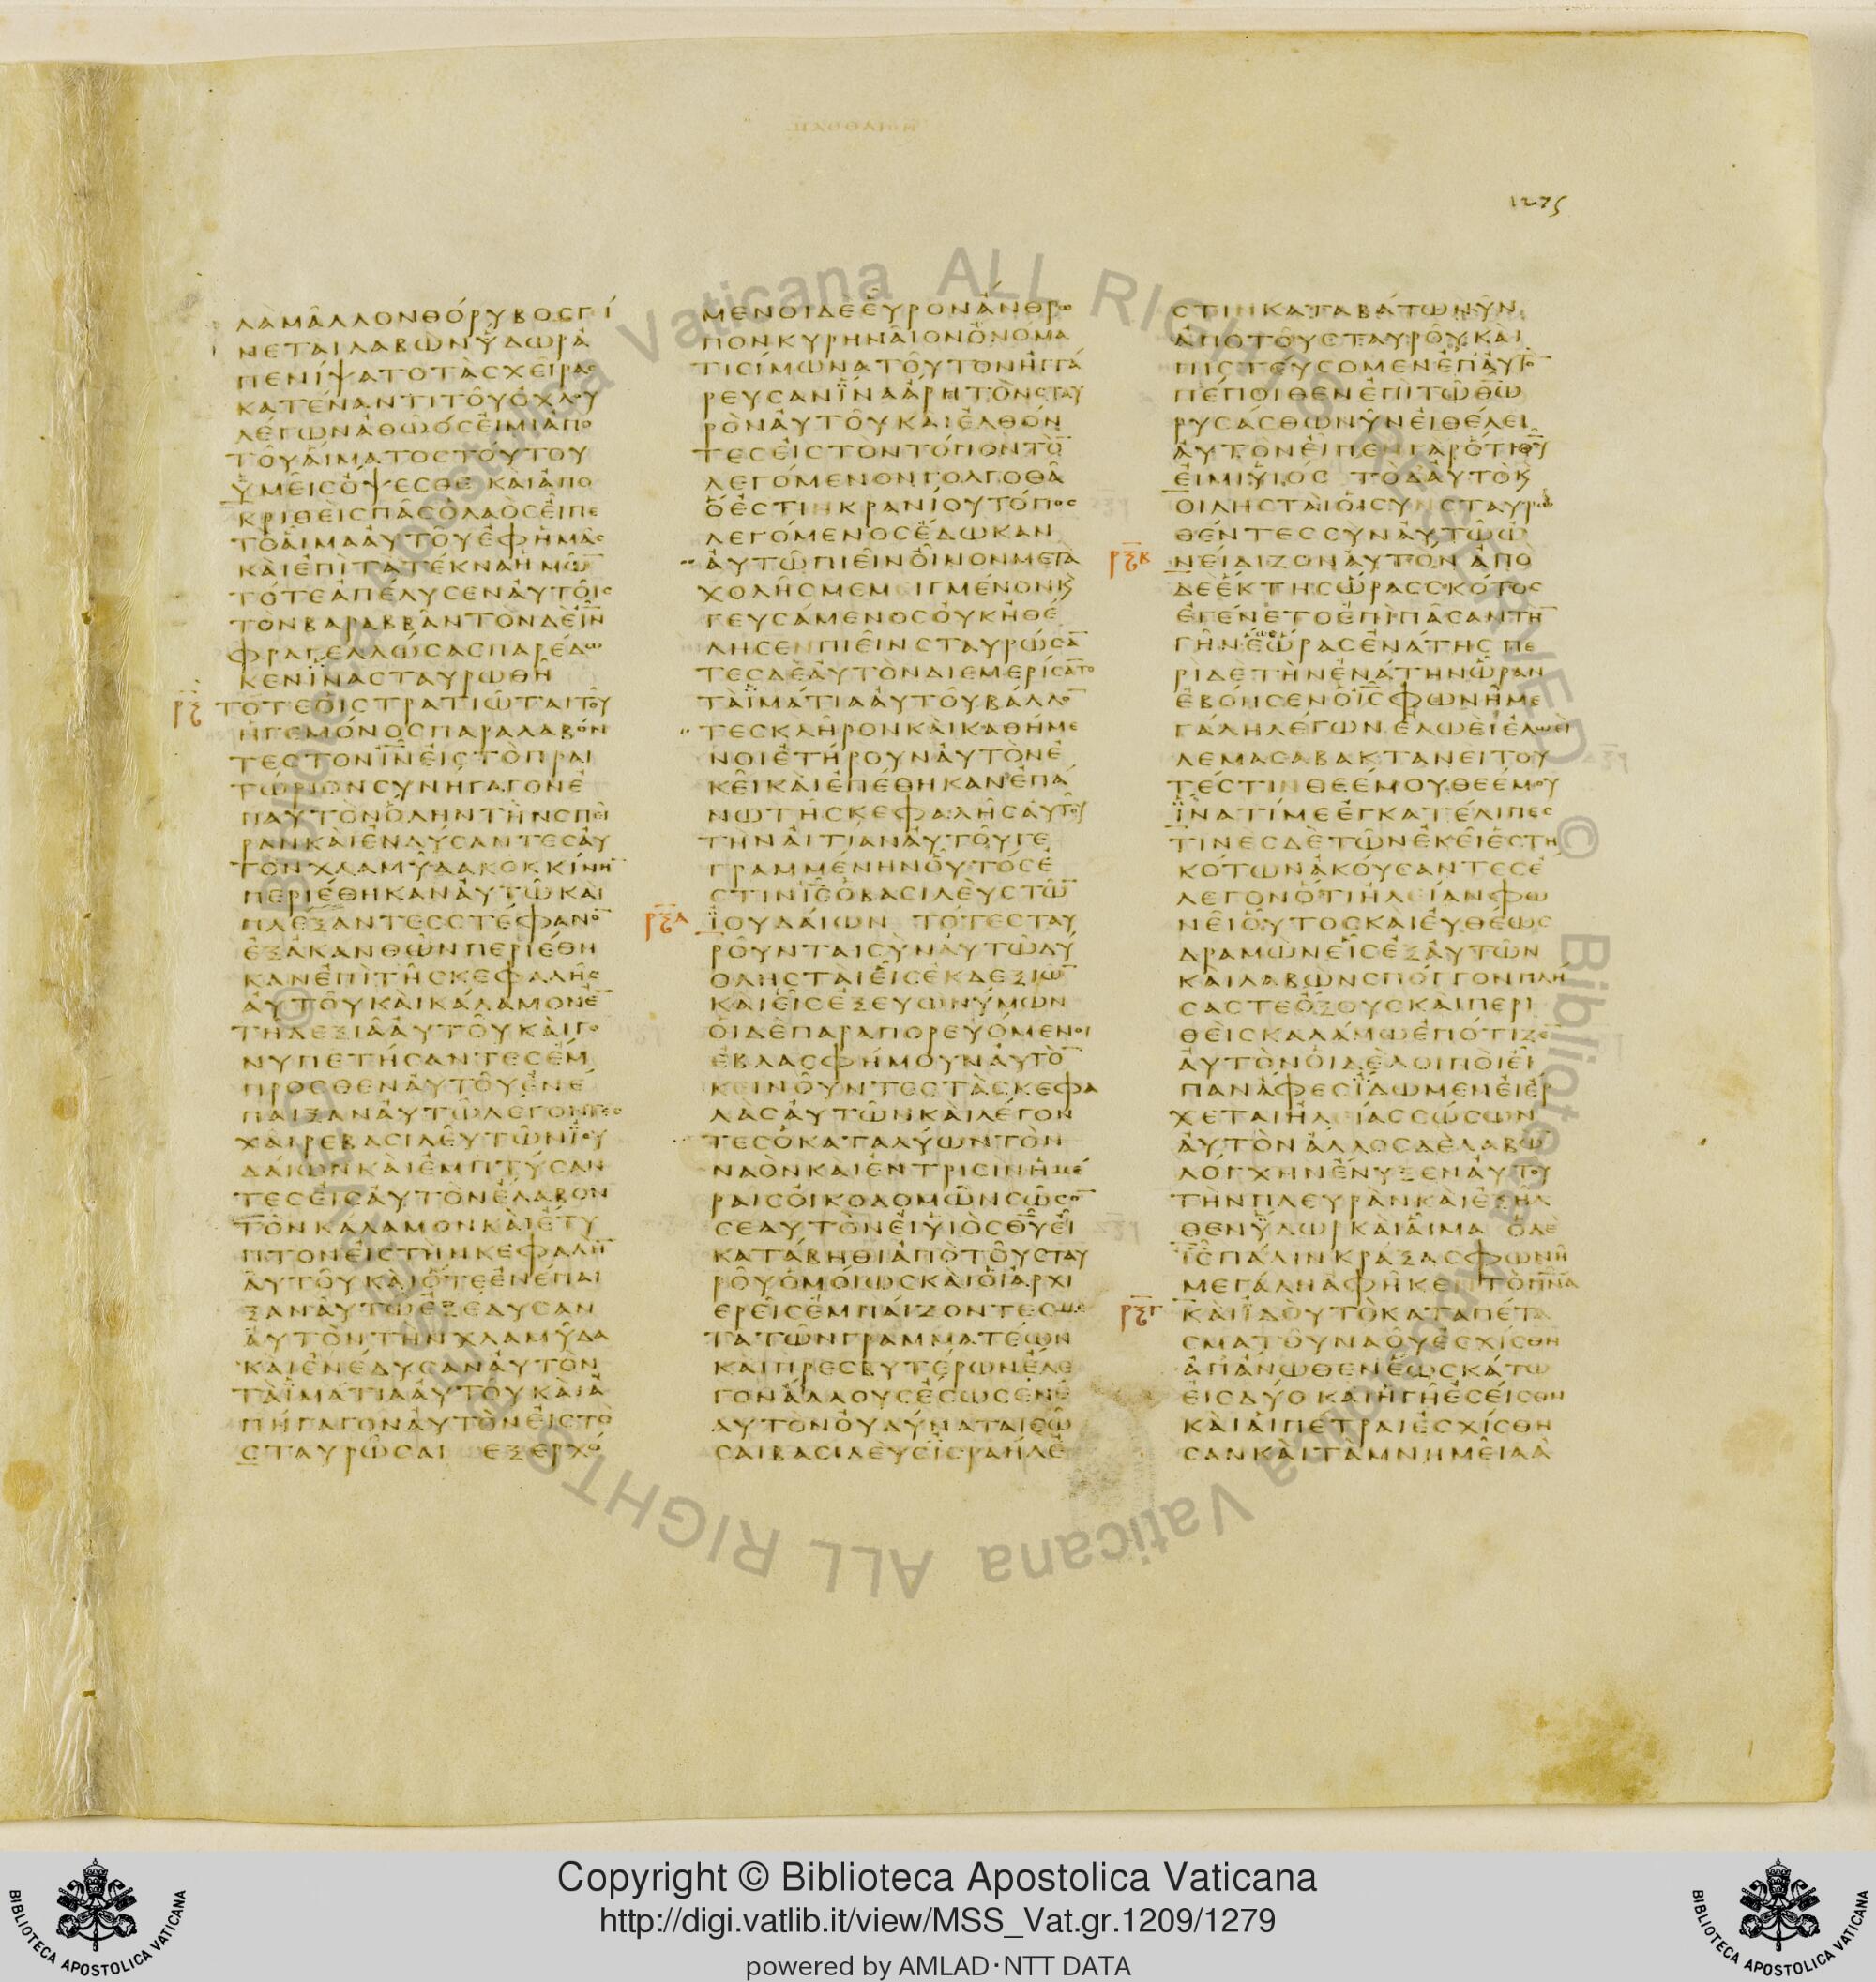 1275
ΛΑΜΑΛΛΟΝΘΟΡΥΒΟΣΓΙ
ΝΕΤΑΙΛΑΒΩΝΥΔΩΡΑ
ΠΕΝΙΨΑΤΟΤΑΣΧΕΙΡΑΣ
ΚΑΤΕΝΑΝΤΙΤΟΥΟΧΛΟΥ
ΛΕΓΩΝΑΘΩΟΣΕΙΜΙΑΠΟ
ΤΟΥΑΙΜΑΤΟΣΤΟΥΤΟΥ
ΥΜΕΙΣΟΨΕΣΘΕ ΚΑΙΑΠΟ
ΚΡΙΘΕΙΣΠΑΣΟΛΑΟΣΕΙΠΕ
ΤΟΑΙΜΑΑΥΤΟΥΕΦΗΜΑΣ
ΚΑΙΕΠΙΤΑΤΕΚΝΑΗΜΩ̅
ΤΟΤΕΑΠΕΛΥΣΕΝΑΥΤΟΙΣ
ΤΟΝΒΑΡΑΒΒΑΝΤΟΝΔΕΙ̅Ν̅
ΦΡΑΓΕΛΛΩΣΑΣΠΑΡΕΔΩ
ΚΕΝΙΝΑΣΤΑΥΡΩΘΗ
ΡΞ ΤΟΤΕΟΙΣΤΡΑΤΙΩΤΑΙΤΟΥ
ΗΓΕΜΟΝΟΣΠΑΡΑΛΑΒΟΝ
ΤΕΣΤΟΝΙ̅Ν̅ΕΙΣΤΟΠΡΑΙ
ΤΩΡΙΟΝΣΥΝΗΓΑΓΟΝΕ
ΠΑΥΤΟΝΟΛΗΝΤΗΝΣΠΕΙ
ΡΑΝΚΑΙΕΝΔΥΣΑΝΤΕΣΑΥ
ΤΟΝΧΛΑΜΥΔΑΚΟΚΚΙΝΗ̅
ΠΕΡΙΕΘΗΚΑΝΑΥΤΩΚΑΙ
ΠΛΕΞΑΝΤΕΣΣΤΕΦΑΝΟ̅
ΕΞΑΚΑΝΘΩΝΠΕΡΙΕΘΗ
ΚΑΝΕΠΙΤΗΣΚΕΦΑΛΗΣ
ΑΥΤΟΥΚΑΙΚΑΛΑΜΟΝΕ̅
ΤΗΔΕΞΙΑΑΥΤΟΥΚΑΙΓΟ
ΝΥΠΕΤΗΣΑΝΤΕΣΕΜ
ΠΡΟΣΘΕΝΑΥΤΟΥΕΝΕ
ΠΑΙΞΑΝΑΥΤΩΛΕΓΟΝΤΕΣ
ΧΑΙΡΕΒΑΣΙΛΕΥΤΩΝΙΟΥ
ΔΑΙΩΝΚΑΙΕΜΠΤΥΣΑΝ
ΤΕΣΕΙΣΑΥΤΟΝΕΛΑΒΟΝ
ΤΟΝΚΑΛΑΜΟΝΚΑΙΕΤΥ
ΠΤΟΝΕΙΣΤΗΝΚΕΦΑΛΗ̅
ΑΥΤΟΥΚΑΙΟΤΕΕΝΕΠΑΙ
ΞΑΝΑΥΤΩΕΞΕΔΥΣΑΝ
ΑΥΤΟΝΤΗΝΧΛΑΜΥΔΑ
ΚΑΙΕΝΕΔΥΣΑΝΑΥΤΟΝ
ΤΑΙΜΑΤΙΑΑΥΤΟΥΚΑΙΑ
ΠΗΓΑΓΟΝΑΥΤΟΝΕΙΣΤΟ
ΣΤΑΥΡΩΣΑΙ ΕΞΕΡΧΟ
ΜΕΝΟΙΔΕΕΥΡΟΝΑΝΘΡΩ
ΠΟΝΚΥΡΗΝΑΙΟΝΟΝΟΜΑ
ΤΙΣΙΜΩΝΑΤΟΥΤΟΝΗΓΓΑ
ΡΕΥΣΑΝΙΝΑΑΡΗΤΟΝΣΤΑΥ
ΡΟΝΑΥΤΟΥΚΑΙΕΛΘΟΝ
ΤΕΣΕΙΣΤΟΝΤΟΠΟΝΤΟ̅
ΛΕΓΟΜΕΝΟΝΓΟΛΓΟΘΑ
ΟΕΣΤΙΝΚΡΑΝΙΟΥΤΟΠΟΣ
ΛΕΓΟΜΕΝΟΣΕΔΩΚΑΝ
ΑΥΤΩΠΙΕΙΝΟΙΝΟΝΜΕΤΑ
ΧΟΛΗΣΜΕΜ ΙΓΜΕΝΟΝΚ
ΓΕΥΣΑΜΕΝΟΣΟΥΚΗΘΕ
ΛΗΣΕΝΠΙΕΙΝΣΤΑΥΡΩΣΑ̅
ΤΕΣΔΕΑΥΤΟΝΔΙΕΜΕΡΙΣΑ̅ΤΟ
ΤΑΙΜΑΤΙΑΑΥΤΟΥΒΑΛΛΟ̅
ΤΕΣΚΛΗΡΟΝΚΑΙΚΑΘΗΜΕ
ΝΟΙΕΤΗΡΟΥΝΑΥΤΟΝΕ
ΚΕΙΚΑΙΕΠΕΘΗΚΑΝΕΠΑ
ΝΩΤΗΣΚΕΦΑΛΗΣΑΥΤΟΥ
ΤΗΝΑΙΤΙΑΝΑΥΤΟΥΓΕ
ΓΡΑΜΜΕΝΗΝΟΥΤΟΣΕ
ΣΤΙΝΙ̅Σ̅ΟΒΑΣΙΛΕΥΣΤΩ̅
ΡΞΑ ΙΟΥΔΑΙΩΝ ΤΟΤΕΣΤΑΥ
ΡΟΥΝΤΑΙΣΥΝΑΥΤΩΔΥ
ΟΛΗΣΤΑΙΕΙΣΕΚΔΕΞΙΩ̅
ΚΑΙΕΙΣΕΞΕΥΩΝΥΜΩΝ
ΟΙΔΕΠΑΡΑΠΟΡΕΥΟΜΕΝΟΙ
ΕΒΛΑΣΦΗΜΟΥΝΑΥΤΟ̅
ΚΕΙΝΟΥΝΤΕΣΤΑΣΚΕΦΑ
ΛΑΣΑΥΤΩΝΚΑΙΛΕΓΟΝ
ΤΕΣΟΚΑΤΑΛΥΩΝΤΟΝ
ΝΑΟΝΚΑΙΕΝΤΡΙΣΙΝΗΜΕ
ΡΑΙΣΟΙΚΟΔΟΜΩΝΣΩΣΟ̅
ΣΕΑΥΤΟΝΕΙΥΙΟΣΘ̅Υ̅ΕΙ
ΚΑΤΑΒΗΘΙΑΠΟΤΟΥΣΤΑΥ
ΡΟΥΟΜΟΙΩΣΚΑΙΟΙΑΡΧΙ
ΕΡΕΙΣΕΜΠΑΙΖΟΝΤΕΣΜΕ
ΤΑΤΩΝΓΡΑΜΜΑΤΕΩΝ
ΚΑΙΠΡΕΣΒΥΤΕΡΩΝΕΛΕ
ΓΟΝΑΛΛΟΥΣΕΣΩΣΕΝΕ
ΑΥΤΟΝΟΥΔΥΝΑΤΑΙΣΩ
ΣΑΙΒΑΣΙΛΕΥΣΙΣΡΑΗΛΕ
ΣΤΙΝΚΑΤΑΒΑΤΩΝΥΝ
ΑΠΟΤΟΥΣΤΑΥΡΟΥΚΑΙ
ΠΙΣΤΕΥΣΟΜΕΝΕΠΑΥΤΟ̅
ΠΕΠΟΙΘΕΝΕΠΙΤΩΘ̅Ω̅
ΡΥΣΑΣΘΩΝΥΝΕΙΘΕΛΕΙ
ΑΥΤΟΝΕΙΠΕΝΓΑΡΟΤΙΘ̅Υ̅
ΕΙΜΙΥΙΟΣ ΤΟΔΑΥΤΟΚ
ΟΙΛΗΣΤΑΙΟΙΣΥΝΣΤΑΥΡΩ
ΘΕΝΤΕΣΣΥΝΑΥΤΩΩ
ΡΞΒ ΝΕΙΔΙΖΟΝΑΥΤΟΝ ΑΠΟ
ΔΕΕΚΤΗΣΩΡΑΣΣΚΟΤΟΣ
ΕΓΕΝΕΤΟΕΠΙΠΑΣΑΝΤΗ̅
ΓΗΝΕΩΣΩΡΑΣΕΝΑΤΗΣ ΠΕ
ΡΙΔΕΤΗΝΕΝΑΤΗΝΩΡΑΝ
ΕΒΟΗΣΕΝΟΙ̅Σ̅ΦΩΝΗΜΕ
ΓΑΛΗΛΕΓΩΝ ΕΛΩΕΙΕΛΩΕΙ
ΛΕΜΑΣΑΒΑΚΤΑΝΕΙΤΟΥ
ΤΕΣΤΙΝΘΕΕΜΟΥΘΕΕΜΟΥ
ΙΝΑΤΙΜΕΕΓΚΑΤΕΛΙΠΕΣ
ΤΙΝΕΣΔΕΤΩΝΕΚΕΙΕΣΤΗ
ΚΟΤΩΝΑΚΟΥΣΑΝΤΕΣΕ
ΛΕΓΟΝΟΤΙΗΛ ΙΑΝΦΩ
ΝΕΙΟΥΤΟΣΚΑΙΕΥΘΕΩΣ
ΔΡΑΜΩΝΕΙΣΕΞΑΥΤΩΝ
ΚΑΙΛΑΒΩΝΣΠΟΓΓΟΝΠΛΗ
ΣΑΣΤΕΟΞΟΥΣΚΑΙΠΕΡΙ
ΘΕΙΣΚΑΛΑΜΩΕΠΟΤΙΖΕ̅
ΑΥΤΟΝΟΙΔΕΛΟΙΠΟΙΕΙ
ΠΑΝΑΦΕΣΙΔΩΜΕΝΕΙΕΡ
ΧΕΤΑΙΗΛ ΙΑΣΣΩΣΩΝ
ΑΥΤΟΝΑΛΛΟΣΔΕΛΑΒΩ̅
ΛΟΓΧΗΝΕΝΥΞΕΝΑΥΤΟΥ
ΤΗΝΠΛΕΥΡΑΝΚΑΙΕΞΗΛ
ΘΕΝΥΔΩΡΚΑΙΑΙΜΑ ΟΔΕ
Ι̅Σ̅ΠΑΛΙΝΚΡΑΞΑΣΦΩΝΗ
ΜΕΓΑΛΗΑΦΗΚΕΝΤΟΠ̅Ν̅Α̅
ΡΞΓ ΚΑΙΙΔΟΥΤΟΚΑΤΑΠΕΤΑ
ΣΜΑΤΟΥΝΑΟΥΕΣΧΙΣΘΗ
ΑΠΑΝΩΘΕΝΕΩΣΚΑΤΩ
ΕΙΣΔΥΟ ΚΑΙΗΓΗΕΣΕΙΣΘΗ
ΚΑΙΑΙΠΕΤΡΑΙΕΣΧΙΣΘΗ
ΣΑΝΚΑΙΤΑΜΝΗΜΕΙΑΑ
Copyright © Biblioteca Apostolica Vaticana
http://digi.vatlib.it/view/MSS_Vat.gr.1209/1279
powered by AMLAD·NTT DATA
BIBLIOTECA APOSTOLICA VATICANA
BIBLIOTECA APOSTOLICA VATICANA
© Biblioteca Apostolica Vaticana ALL RIGHTS RESERVED
© Biblioteca Apostolica Vaticana ALL RIGHTS RESERVED